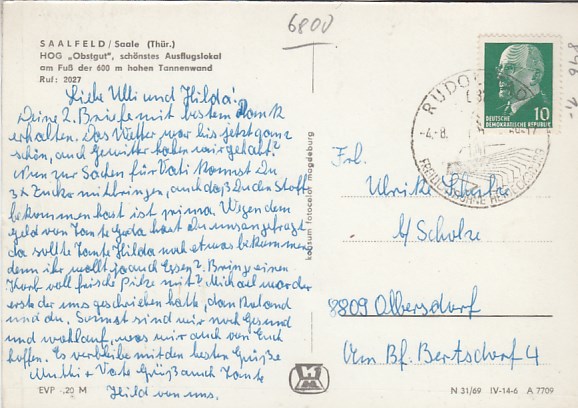 6800
SAALFELD / Saale (Thür.)
HOG „Obstgut“, schönstes Ausflugslokal
am Fuß der 600 m hohen Tannenwand
Ruf: 2027
Liebe Ulli und Hilda!
Deine 2. Briefe mit bestem Dank
erhalten. Das Wetter war bis jetzt ganz
schön, auch Gewitter haben wir gehabt.
Nun zur Sachen für Vati kannst Du
3x Zucker mitbringen, auch daß Du den Stoff
bekommen hast ist prima. Wegen dem
geld von Tante Gerda hast du uns angefragt
da sollte Tante Hilda noch etwas bekommen
denn ihr wollt ja auch Essen? Bring einen
Korb voll frische Pilze mit? Michael war der
erste der uns geschrieben hatte, dan Roland
und du. Sonnst sind wir noch Gesund
und wohlauf, was wir auch von Euch
hoffen. Es verbleibe mit den besten Grüße
Mutti + Vate Grüß auch Tante
Hild von uns.
EVP -,20 M
konsum fotocolor magdeburg
RUDOLSTADT
-4.-8.
10
DEUTSCHE
DEMOKRATISCHE REPUBLIK
Frl.
Ulrike
b/ Scholze
8809 Olbersdorf
Am Bf. Bertsdorf 4
N 31/69 IV-14-6 A 7709